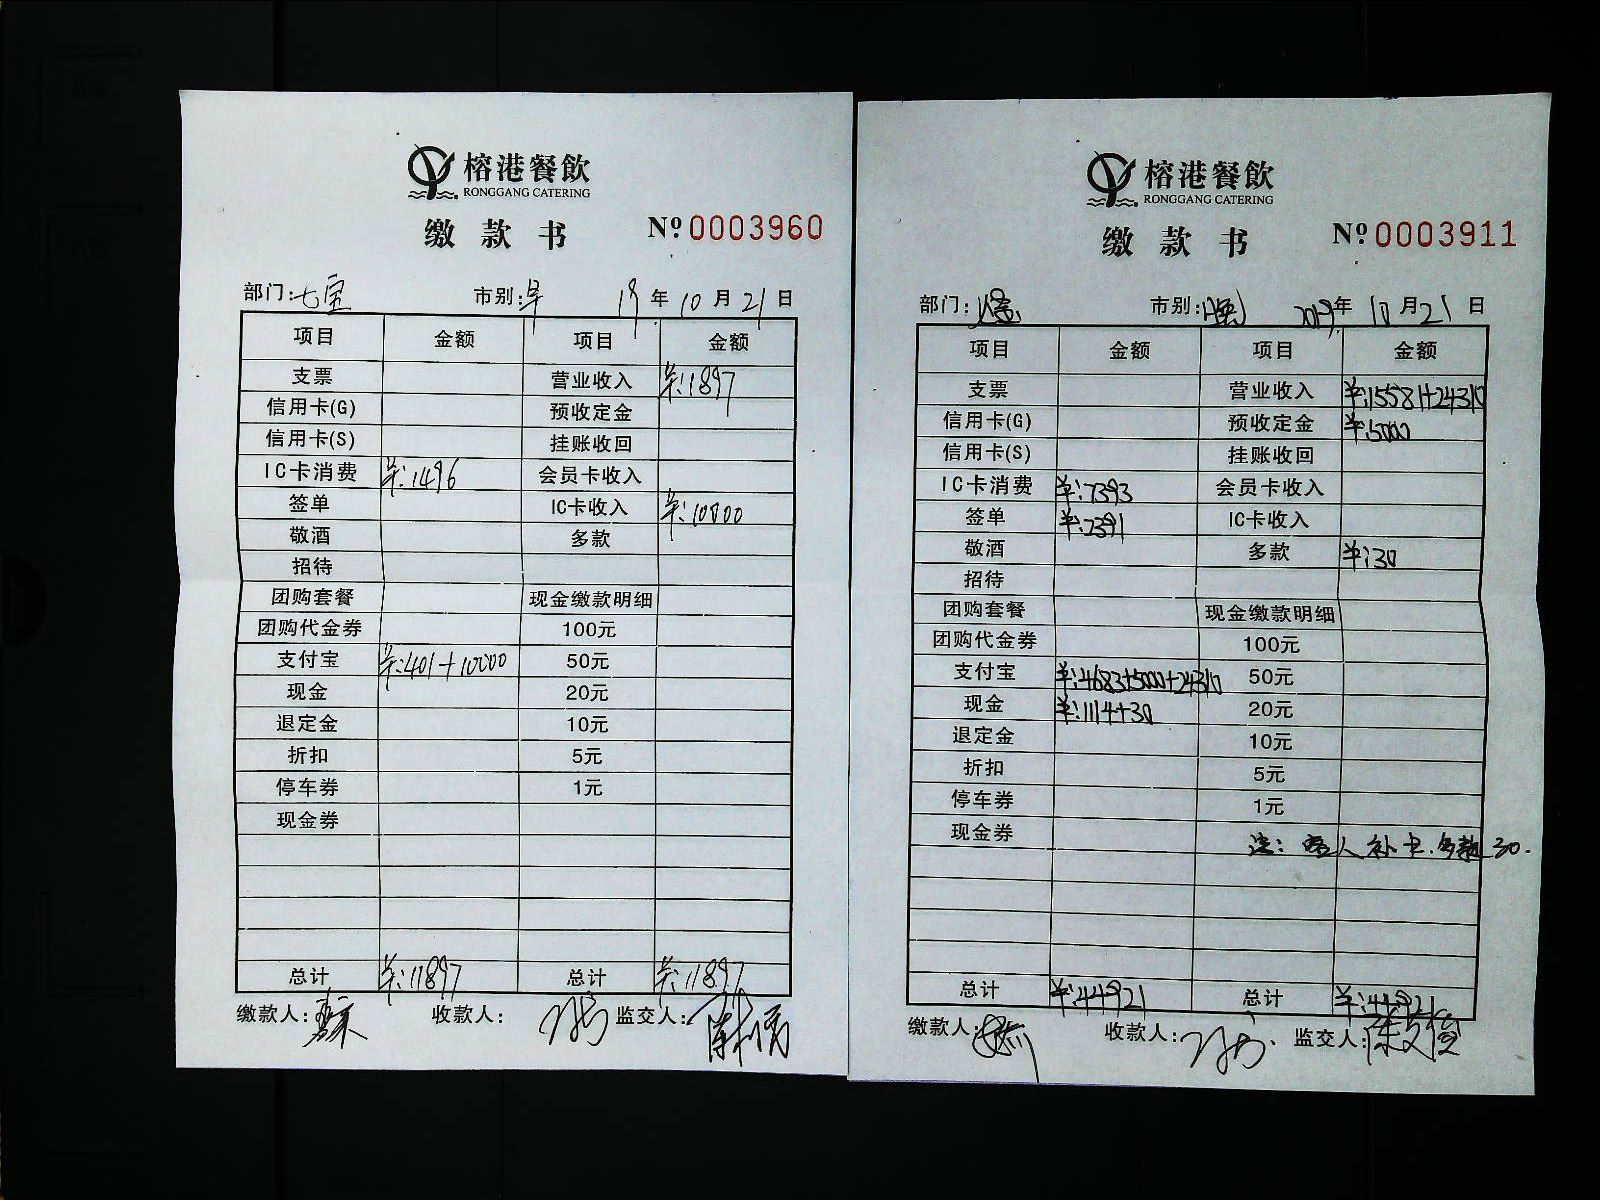 榕港餐飲
RONGGANG CATERING
缴款书 Nº 0003960
部门:七宝 市别:早 19年10月21日
项目 金额 项目 金额
支票 营业收入 ¥:1897
信用卡(G) 预收定金
信用卡(S) 挂账收回
IC卡消费 ¥:1496 会员卡收入
签单 IC卡收入 ¥:10000
敬酒 多款
招待
团购套餐 现金缴款明细
团购代金券 100元
支付宝 ¥:401+10000 50元
现金 20元
退定金 10元
折扣 5元
停车券 1元
现金券
总计 ¥:11897 总计 ¥:11897
缴款人: 收款人: 监交人:
榕港餐飲
RONGGANG CATERING
缴款书 Nº 0003911
部门: 市别: 2019年10月21日
项目 金额 项目 金额
支票 营业收入 ¥:15581+24310
信用卡(G) 预收定金 ¥:5000
信用卡(S) 挂账收回
IC卡消费 ¥:7393 会员卡收入
签单 ¥:2391 IC卡收入
敬酒 多款 ¥:30
招待
团购套餐 现金缴款明细
团购代金券 100元
支付宝 ¥:4683+5000+24310 50元
现金 ¥:1114+30 20元
退定金 10元
折扣 5元
停车券 1元
现金券 注: 客人补卡.多款30.
总计 ¥:44921 总计 ¥:44921
缴款人: 收款人: 监交人: